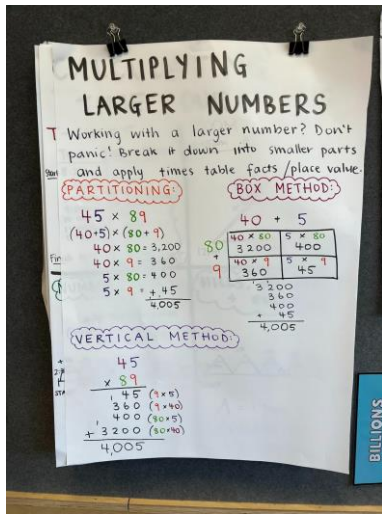 MULTIPLYING
LARGER NUMBERS
Working with a larger number? Don't
panic! Break it down into smaller parts
and apply times table facts/place value.
PARTITIONING:
45 × 89
(40+5)×(80+9)
40 × 80 = 3,200
40 × 9 = 360
5 × 80 = 400
5 × 9 = + 45
4,005
BOX METHOD:
40 + 5
80
+
9
40 × 80 5 × 80
3200 400
40 × 9 5 × 9
360 45
1
3200
360
400
+ 45
4,005
VERTICAL METHOD:
45
× 89
45 (9×5)
360 (9×40)
400 (80×5)
+ 3200 (80×40)
4,005
BILLIONS